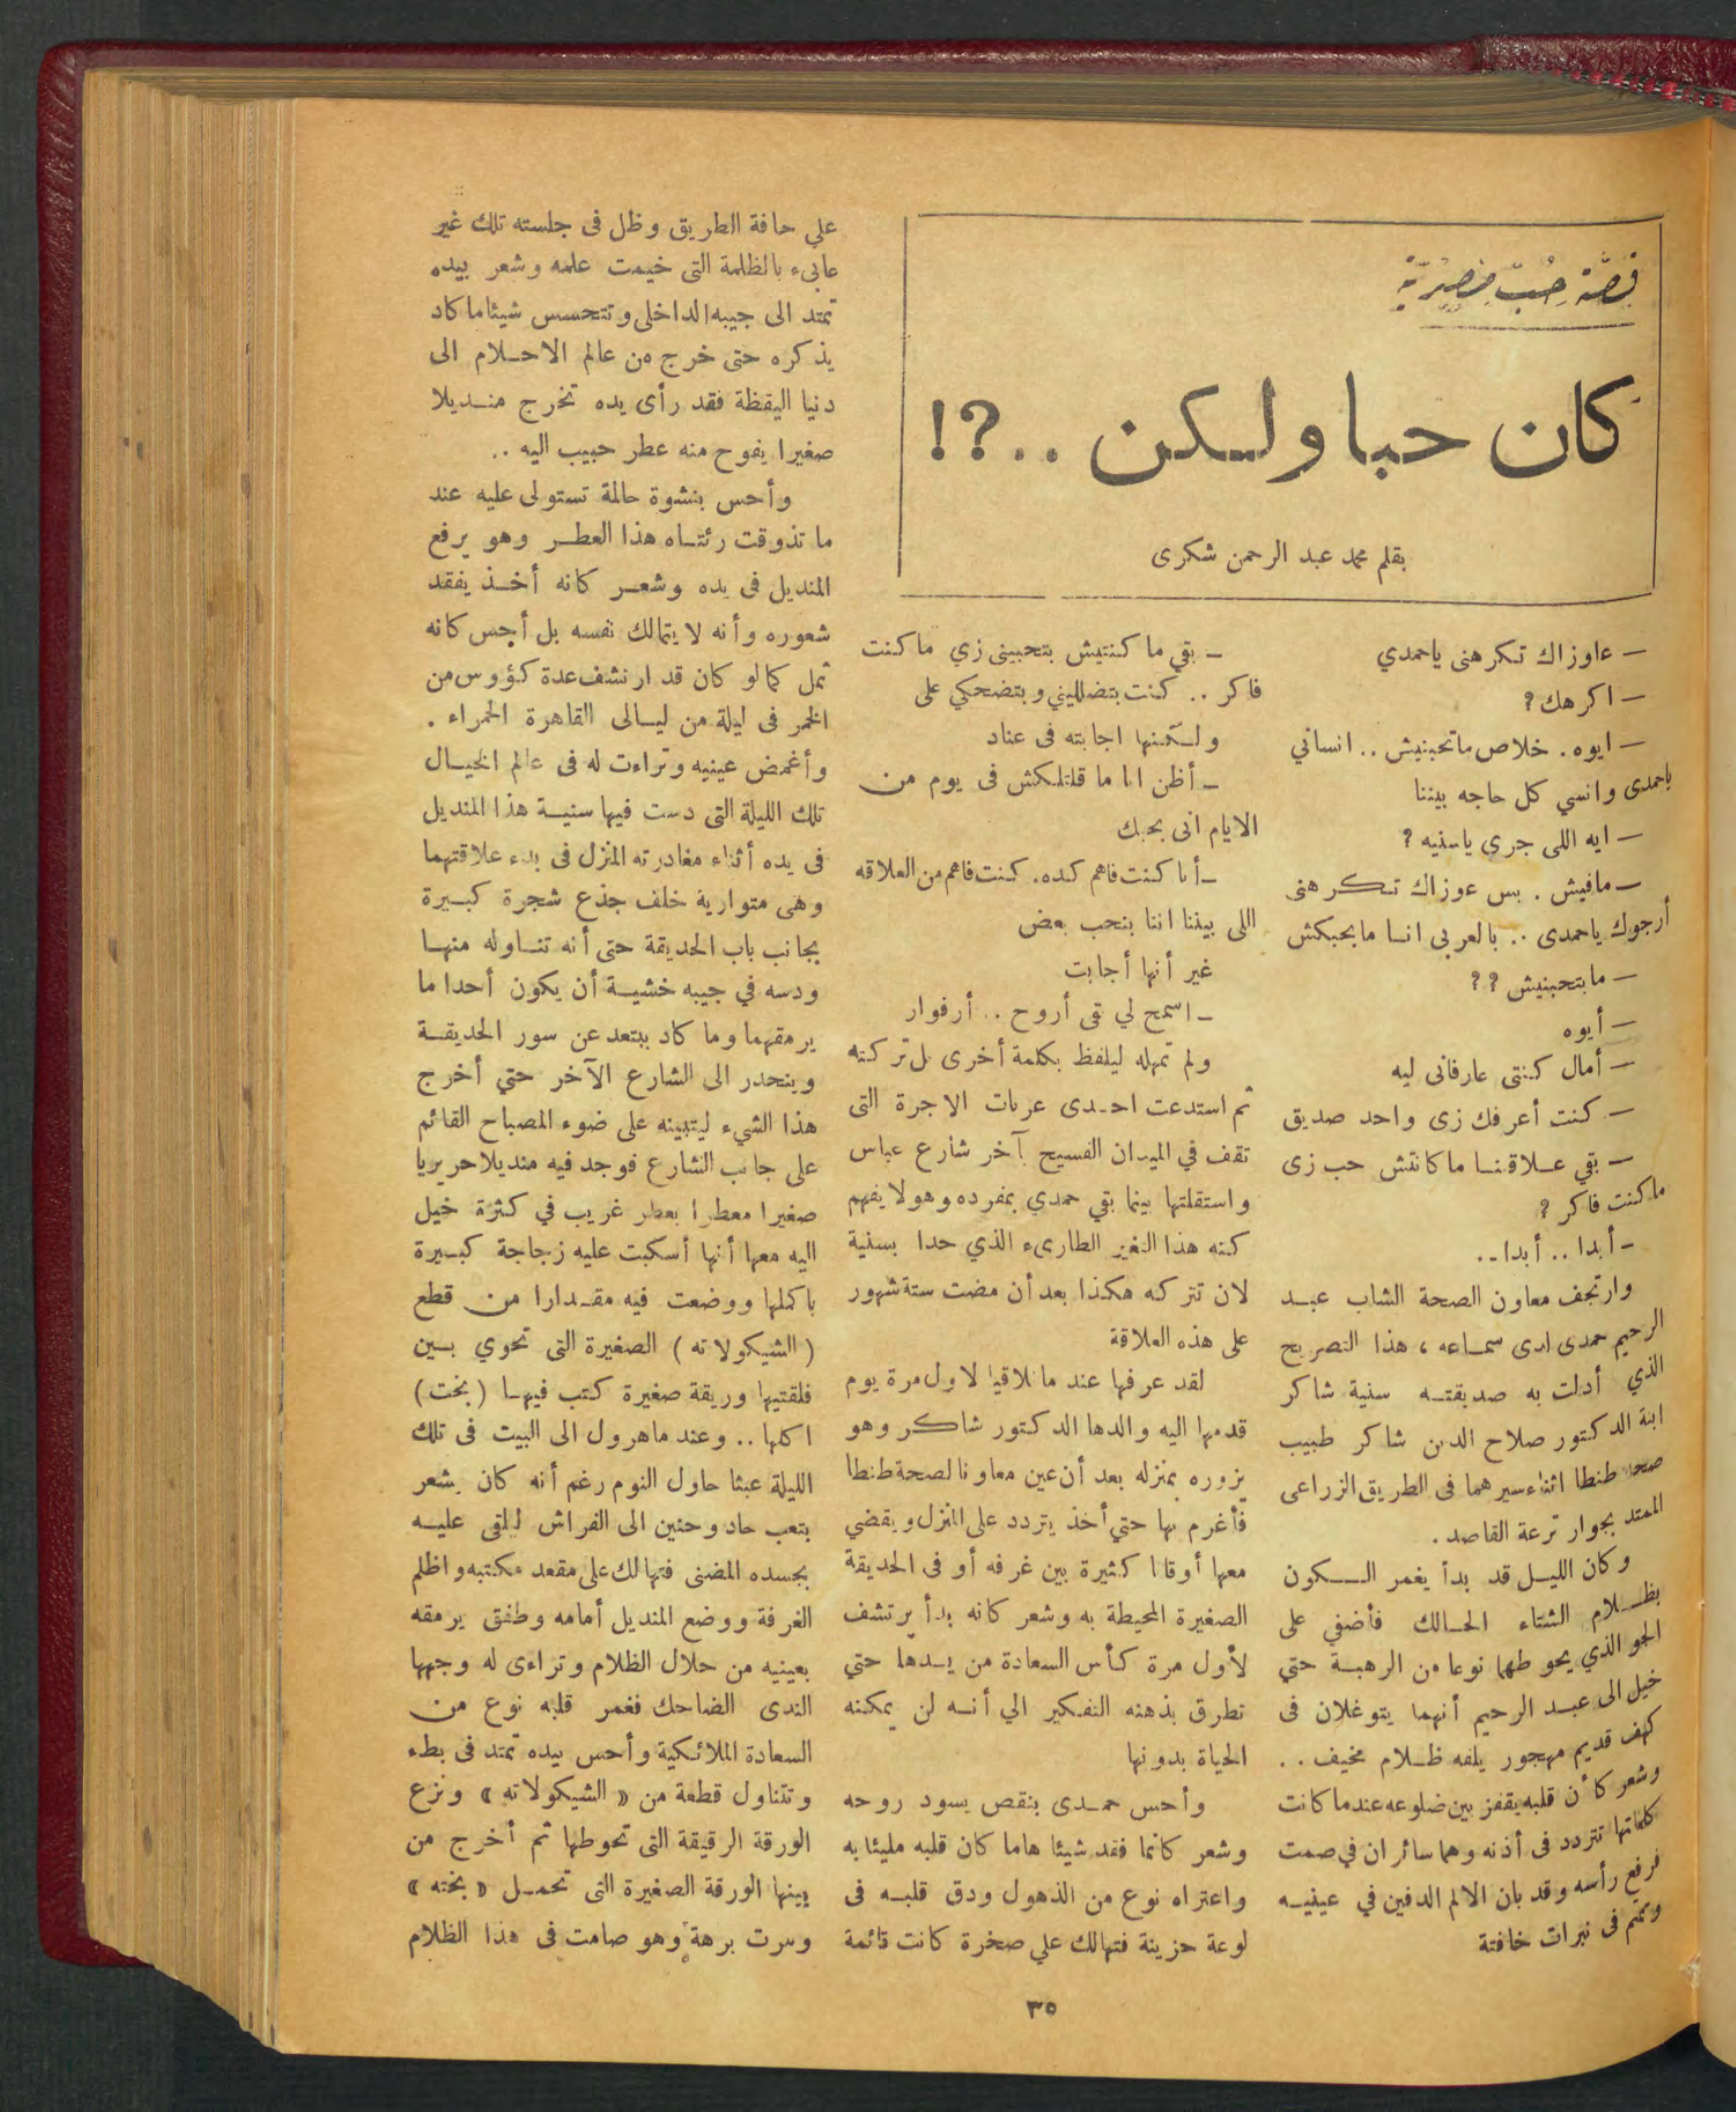 قصة حب مصرية
كان حبا ولكن ..?!
بقلم محمد عبد الرحمن شكرى
— عاوزاك تكرهنى ياحمدي
— اكرهك ?
— ايوه . خلاص ماتحبنيش .. انساني
ياحمدى وانسي كل حاجه بيننا
— ايه اللى جرى ياسنيه ?
— مافيش . بس عوزاك تكرهنى
أرجوك ياحمدى .. بالعربى انا مابحبكش
— مابتحبنيش ??
— أيوه
— أمال كنتى عارفانى ليه
— كنت أعرفك زى واحد صديق
— بقي علاقتنا ماكانتش حب زى
ماكنت فاكر ?
— أبدا .. أبدا ..
وارتجف معاون الصحة الشاب عبد
الرحيم حمدى لدى سماعه ، هذا التصريح
الذي أدلت به صديقته سنية شاكر
ابنة الدكتور صلاح الدين شاكر طبيب
صحة طنطا اثناء سيرهما فى الطريق الزراعى
الممتد بجوار ترعة القاصد .
وكان الليل قد بدأ يغمر السكون
بظلام الشتاء الحالك فأضفي على
الجو الذي يحوطهما نوعا من الرهبة حتي
خيل الى عبد الرحيم أنهما يتوغلان فى
كهف قديم مهجور يلفه ظلام مخيف ..
وشعر كأن قلبه يقفز بين ضلوعه عندما كانت
كلماتها تتردد فى أذنه وهما سائران في صمت
فرفع رأسه وقد بان الالم الدفين في عينيه
وتمتم فى نبرات خافتة
— بقي ما كنتيش بتحبينى زي ماكنت
فاكر .. كنت بتضلليني وبتضحكي على
ولكنها اجابته فى عناد
— أظن انا ما قلتلكش فى يوم من
الايام انى بحبك
— أنا كنت فاهم كده . كنت فاهم من العلاقه
اللى بيننا اننا بنحب بعض
غير أنها أجابت
— اسمح لي بقى أروح .. أرفوار
ولم تمهله ليلفظ بكلمة أخرى بل تركته
ثم استدعت احدى عربات الاجرة التى
تقف في الميدان الفسيح آخر شارع عباس
واستقلتها بينما بقي حمدي بمفرده وهو لا يفهم
كنه هذا التغير الطارىء الذي حدا بسنية
لان تتركه هكذا بعد أن مضت ستة شهور
على هذه العلاقة
لقد عرفها عند ما تلاقيا لاول مرة يوم
قدمها اليه والدها الدكتور شاكر وهو
يزوره بمنزله بعد أن عين معاونا لصحة طنطا
فأغرم بها حتي أخذ يتردد على المنزل ويقضي
معها أوقاتا كثيرة بين غرفه أو فى الحديقة
الصغيرة المحيطة به وشعر كانه بدأ يرتشف
لأول مرة كأس السعادة من يدها حتي
تطرق بذهنه التفكير الي أنه لن يمكنه
الحياة بدونها
وأحس حمدى بنقص يسود روحه
وشعر كانما فقد شيئا هاما كان قلبه مليئا به
واعتراه نوع من الذهول ودق قلبه فى
لوعة حزينة فتهالك علي صخرة كانت قائمة
علي حافة الطريق وظل فى جلسته تلك غير
عابىء بالظلمة التى خيمت علمه وشعر بيده
تمتد الى جيبه الداخلى وتتحسس شيئا ما كاد
يذكره حتى خرج من عالم الاحلام الى
دنيا اليقظة فقد رأى يده تخرج منديلا
صغيرا يفوح منه عطر حبيب اليه ..
وأحس بنشوة حالمة تستولى عليه عند
ما تذوقت رئتاه هذا العطر وهو يرفع
المنديل فى يده وشعر كانه أخذ يفقد
شعوره وأنه لا يتمالك نفسه بل أحس كانه
ثمل كما لو كان قد ارتشف عدة كؤوس من
الخمر فى ليلة من ليالى القاهرة الحمراء .
وأغمض عينيه وتراءت له فى عالم الخيال
تلك الليلة التى دست فيها سنية هذا المنديل
فى يده أثناء مغادرته المنزل فى بدء علاقتهما
وهى متوارية خلف جذع شجرة كبيرة
بجانب باب الحديقة حتى أنه تناوله منها
ودسه في جيبه خشية أن يكون أحدا ما
يرمقهما وما كاد يبتعد عن سور الحديقة
وينحدر الى الشارع الآخر حتي أخرج
هذا الشيء ليتبينه على ضوء المصباح القائم
على جانب الشارع فوجد فيه منديلا حريريا
صغيرا معطرا بعطر غريب في كثرة خيل
اليه معها أنها أسكبت عليه زجاجة كبيرة
باكملها ووضعت فيه مقدارا من قطع
( الشيكولاته ) الصغيرة التى تحوي بين
فلقتيها وريقة صغيرة كتب فيها ( بخت )
اكلها .. وعند ماهرول الى البيت فى تلك
الليلة عبثا حاول النوم رغم أنه كان يشعر
بتعب حاد وحنين الى الفراش ليلقى عليه
بجسده المضنى فتهالك على مقعد مكتبه واظلم
الغرفة ووضع المنديل أمامه وطفق يرمقه
بعينيه من خلال الظلام وتراءى له وجهها
الندى الضاحك فغمر قلبه نوع من
السعادة الملائكية وأحس بيده تمتد فى بطء
وتتناول قطعة من « الشيكولاته » ونزع
الورقة الرقيقة التى تحوطها ثم أخرج من
بينها الورقة الصغيرة التى تحمل « بخته »
ومرت برهة وهو صامت فى هذا الظلام
٣٥